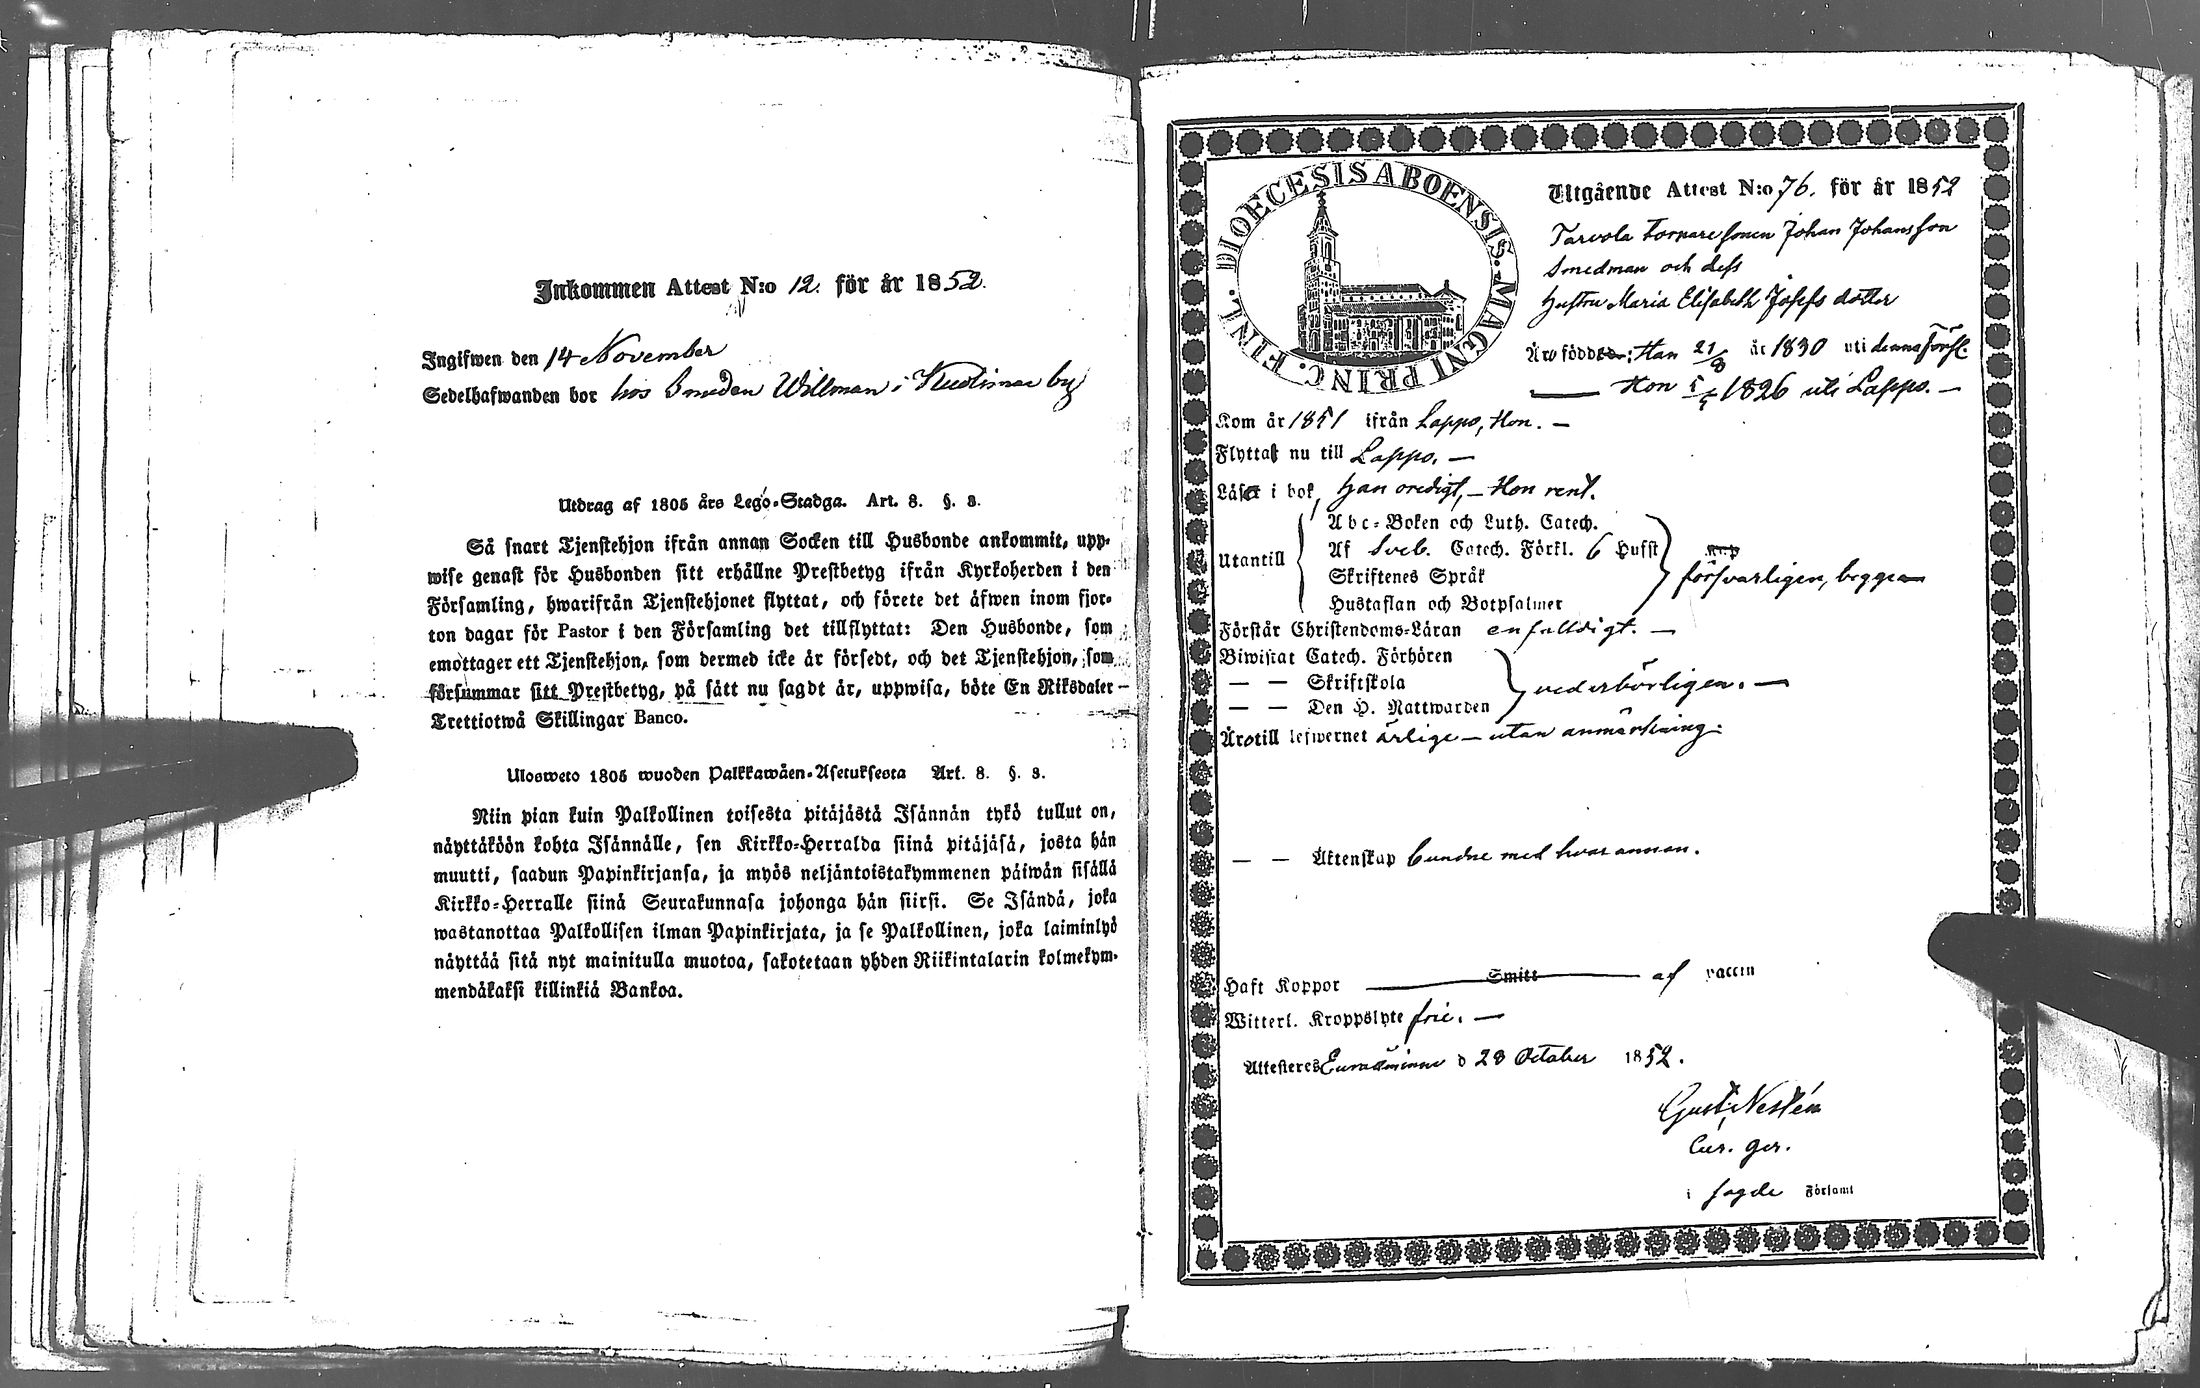 Inkommen Attest N:o 12. för år 1852.
Ingifwen den 14 November
Sedelhafwanden bor hos Smeden Willman i by
Utdrag af 1805 års Lego-Stadga. Art. 8. §. 3.
Så snart Tjenstehjon ifrån annan Socken till Husbonde ankommit, upp-
wise genast för Husbonden sitt erhållne Prestbetyg ifrån Kyrkoherden i den
Församling, hwarifrån Tjenstehjonet flyttat, och förete det äfwen inom fjor-
ton dagar för Pastor i den Församling det tillflyttat: Den Husbonde, som
emottager ett Tjenstehjon, som dermed icke är försedt, och det Tjenstehjon, som
försummar sitt Prestbetyg, på sätt nu sagdt är, uppwisa, böte En Riksdaler
Trettiotwå Skillingar Banco.
Ulosweto 1805 wuoden Palkkawäen-Asetuksesta Art. 8. §. 3.
Niin pian kuin Palkollinen toisesta pitäjästä Isännän tykö tullut on,
näyttäköön kohta Isännälle, sen Kirkko-Herralda siinä pitäjäsä, josta hän
muutti, saadun Papinkirjansa, ja myös neljäntoistakymmenen päiwän sisällä
Kirkko-Herralle siinä Seurakunnasa johonga hän siirsi. Se Isändä, joka
wastanottaa Palkollisen ilman Papinkirjata, ja se Palkollinen, joka laiminlyö
näyttää sitä nyt mainitulla muotoa, sakotetaan yhden Riikintalarin kolmekym-
mendäkaksi killinkiä Bankoa.
DIOECESIS ABOENSIS. MAGNI PRINC. FINL.
Utgående Attest N:o 76. för år 1852
Tarvola Torpare sonen Johan Johansson
Smedman och dess
hustru Maria Elisabeth Josefs dotter
Äro födde: Han 21/8 år 1830 uti denna Förs.
Hon 5/5 1826 uti Lappo. —
Kom år 1851 ifrån Lappo, Hon. —
Flyttat nu till Lappo. —
Läser i bok, han oredigt, — Hon rent.
Utantill
Abc-Boken och Luth. Catech.
Af Sveb. Catech. Förkl. 6 Hufst
Skriftenes Språk
Hustaflan och Botpsalmer
försvarligen, begge
Förstår Christendoms-Läran enfaldigt. —
Biwistat Catech. Förhören
— — Skriftskola
— — Den H. Nattwarden
vederbörligen. —
Äro till lefwernet ärlige — utan anmärkning.
— — Äktenskap bundne med hvar annan.
Haft Koppor Smitt af vaccin
Witterl. Kroppslyte frie. —
Attesteres Euraåminne d 28 October 1852.
Gust. Nestén
Cur. ger.
i sagde Församl